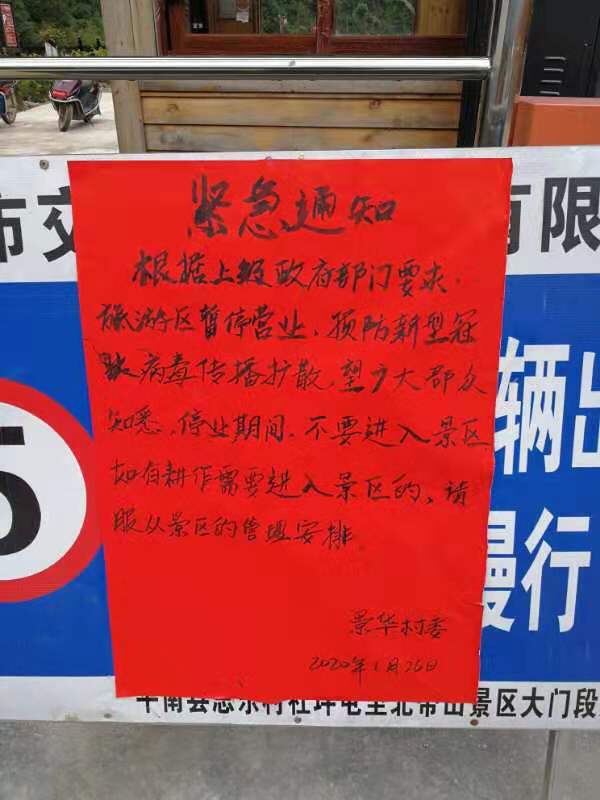 市交
有限
紧急通知
根据上级政府部门要求,
旅游区暂停营业,预防新型冠
状病毒传播扩散,望广大群众
知悉,停业期间,不要进入景区
如有耕作需要进入景区的,请
服从景区的管理安排
景华村委
2020年1月26日
5
辆出
慢行
平南县思
景区大门段